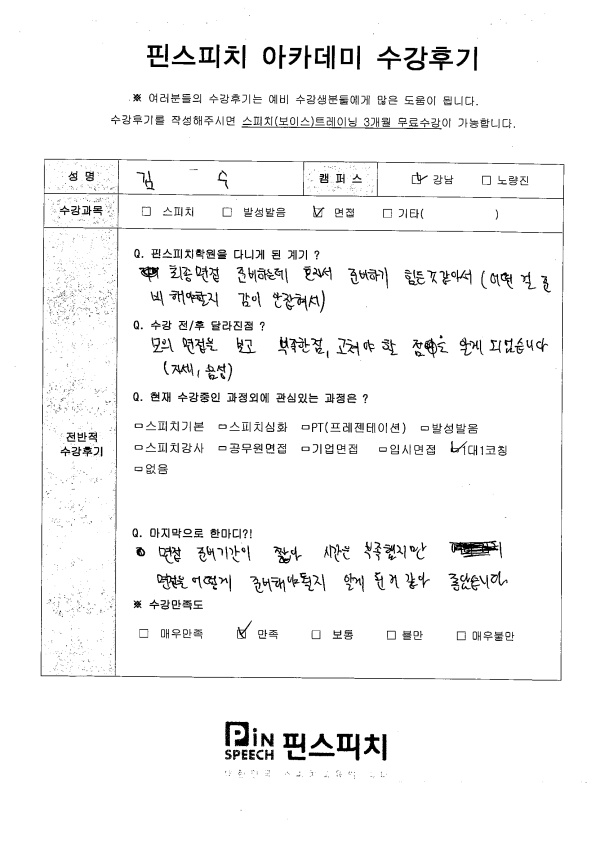 핀스피치 아카데미 수강후기
※ 여러분들의 수강후기는 예비 수강생분들에게 많은 도움이 됩니다.
수강후기를 작성해주시면 스피치(보이스)트레이닝 3개월 무료수강이 가능합니다.
성 명 김 수 캠 퍼 스 ☑ 강남 □ 노량진
수강과목 □ 스피치 □ 발성발음 ☑ 면접 □ 기타( )
전반적
수강후기
Q. 핀스피치학원을 다니게 된 계기 ?
최종면접 준비하는데 혼자서 준비하기 힘든것같아서 (어떤 걸 준
비 해야할지 감이 안잡혀서)
Q. 수강 전/후 달라진점 ?
모의 면접을 보고 부족한점, 고쳐야 할 점을 알게 되었습니다
(자세, 음성)
Q. 현재 수강중인 과정외에 관심있는 과정은 ?
□스피치기본 □스피치심화 □PT(프레젠테이션) □발성발음
□스피치강사 □공무원면접 □기업면접 □입시면접 ☑1대1코칭
□없음
Q. 마지막으로 한마디?!
면접 준비기간이 짧아 시간은 부족했지만
면접을 어떻게 준비해야될지 알게 된거 같아 좋았습니다.
※ 수강만족도
□ 매우만족 ☑ 만족 □ 보통 □ 불만 □ 매우불만
PIN
SPEECH 핀스피치